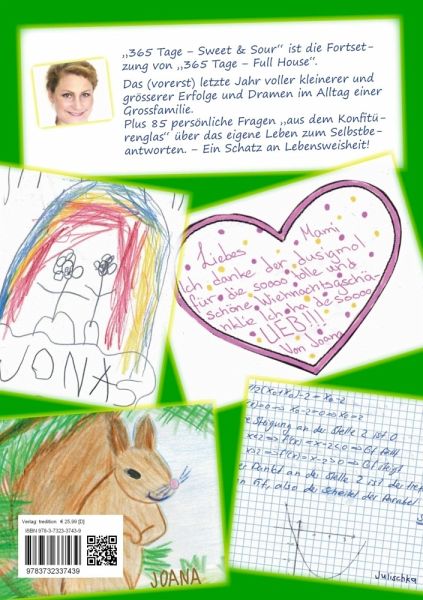 „365 Tage – Sweet & Sour“ ist die Fortset-
zung von „365 Tage – Full House“.
Das (vorerst) letzte Jahr voller kleinerer und
grösserer Erfolge und Dramen im Alltag einer
Grossfamilie.
Plus 85 persönliche Fragen „aus dem Konfitü-
renglas“ über das eigene Leben zum Selbstbe-
antworten. – Ein Schatz an Lebensweisheit!
Liebes Mami
Ich danke der dusignol
für die soooo tolle und
schöne Wiehnachtsgschä-
nkkle Ich ha de soooo
LIEB!!!
Von Joana
JONAS
Steigung an der Stelle 2 ist 0
Punkt an der Stelle 2 ist der
also der Scheitel der Parabel
Julischka
Verlag: tredition € 25,99 [D]
ISBN 978-3-7323-3743-9
9783732337439
JOANA